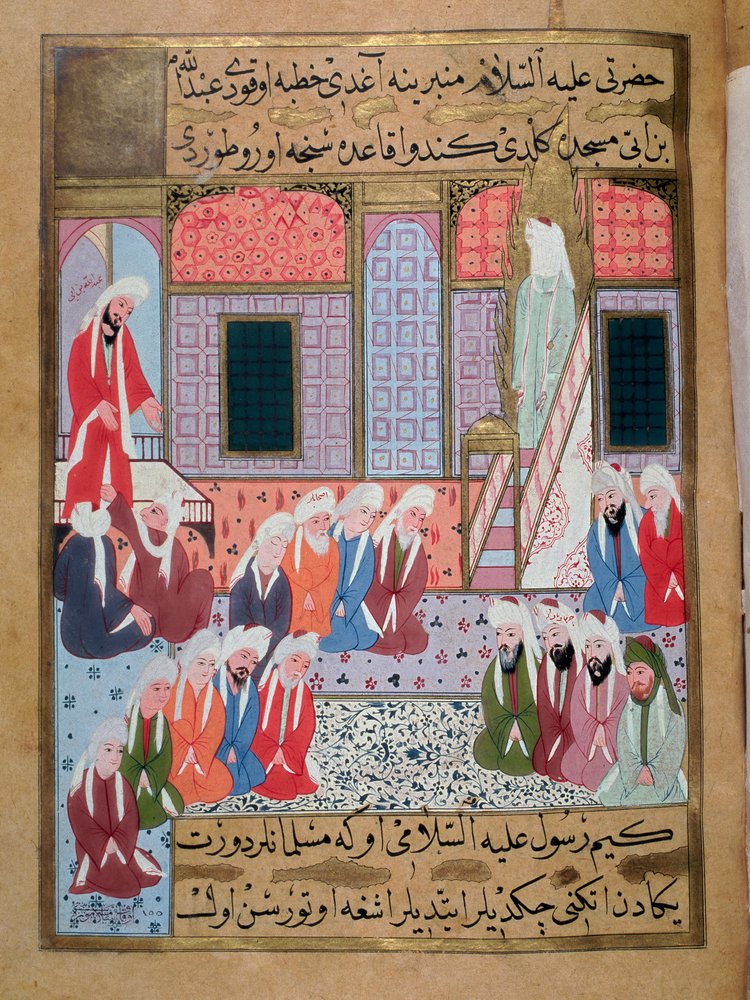 حضرتى عليه السلام منبرينه آغدى خطبه اوقودى عبدالله
بن ابى مسجده كلدى كندو قاعده سنجه اورو طوردى
عبدالله بن ابى
اصحابلر
كيم رسول عليه السلامى اوكه مسلمانلر دورت
يكادن اتكنى چكديلر ايتديلر اشغه اوتورسن اول
١٥٥